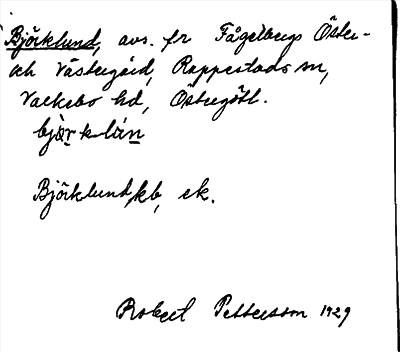 Björklund, avs. fr Fågelbergs Öster-
och Västergård, Rappestads sn,
Valkebo hd, Östergötl.
björklún
Björklund, kb, ek.
Robert Pettersson 1929